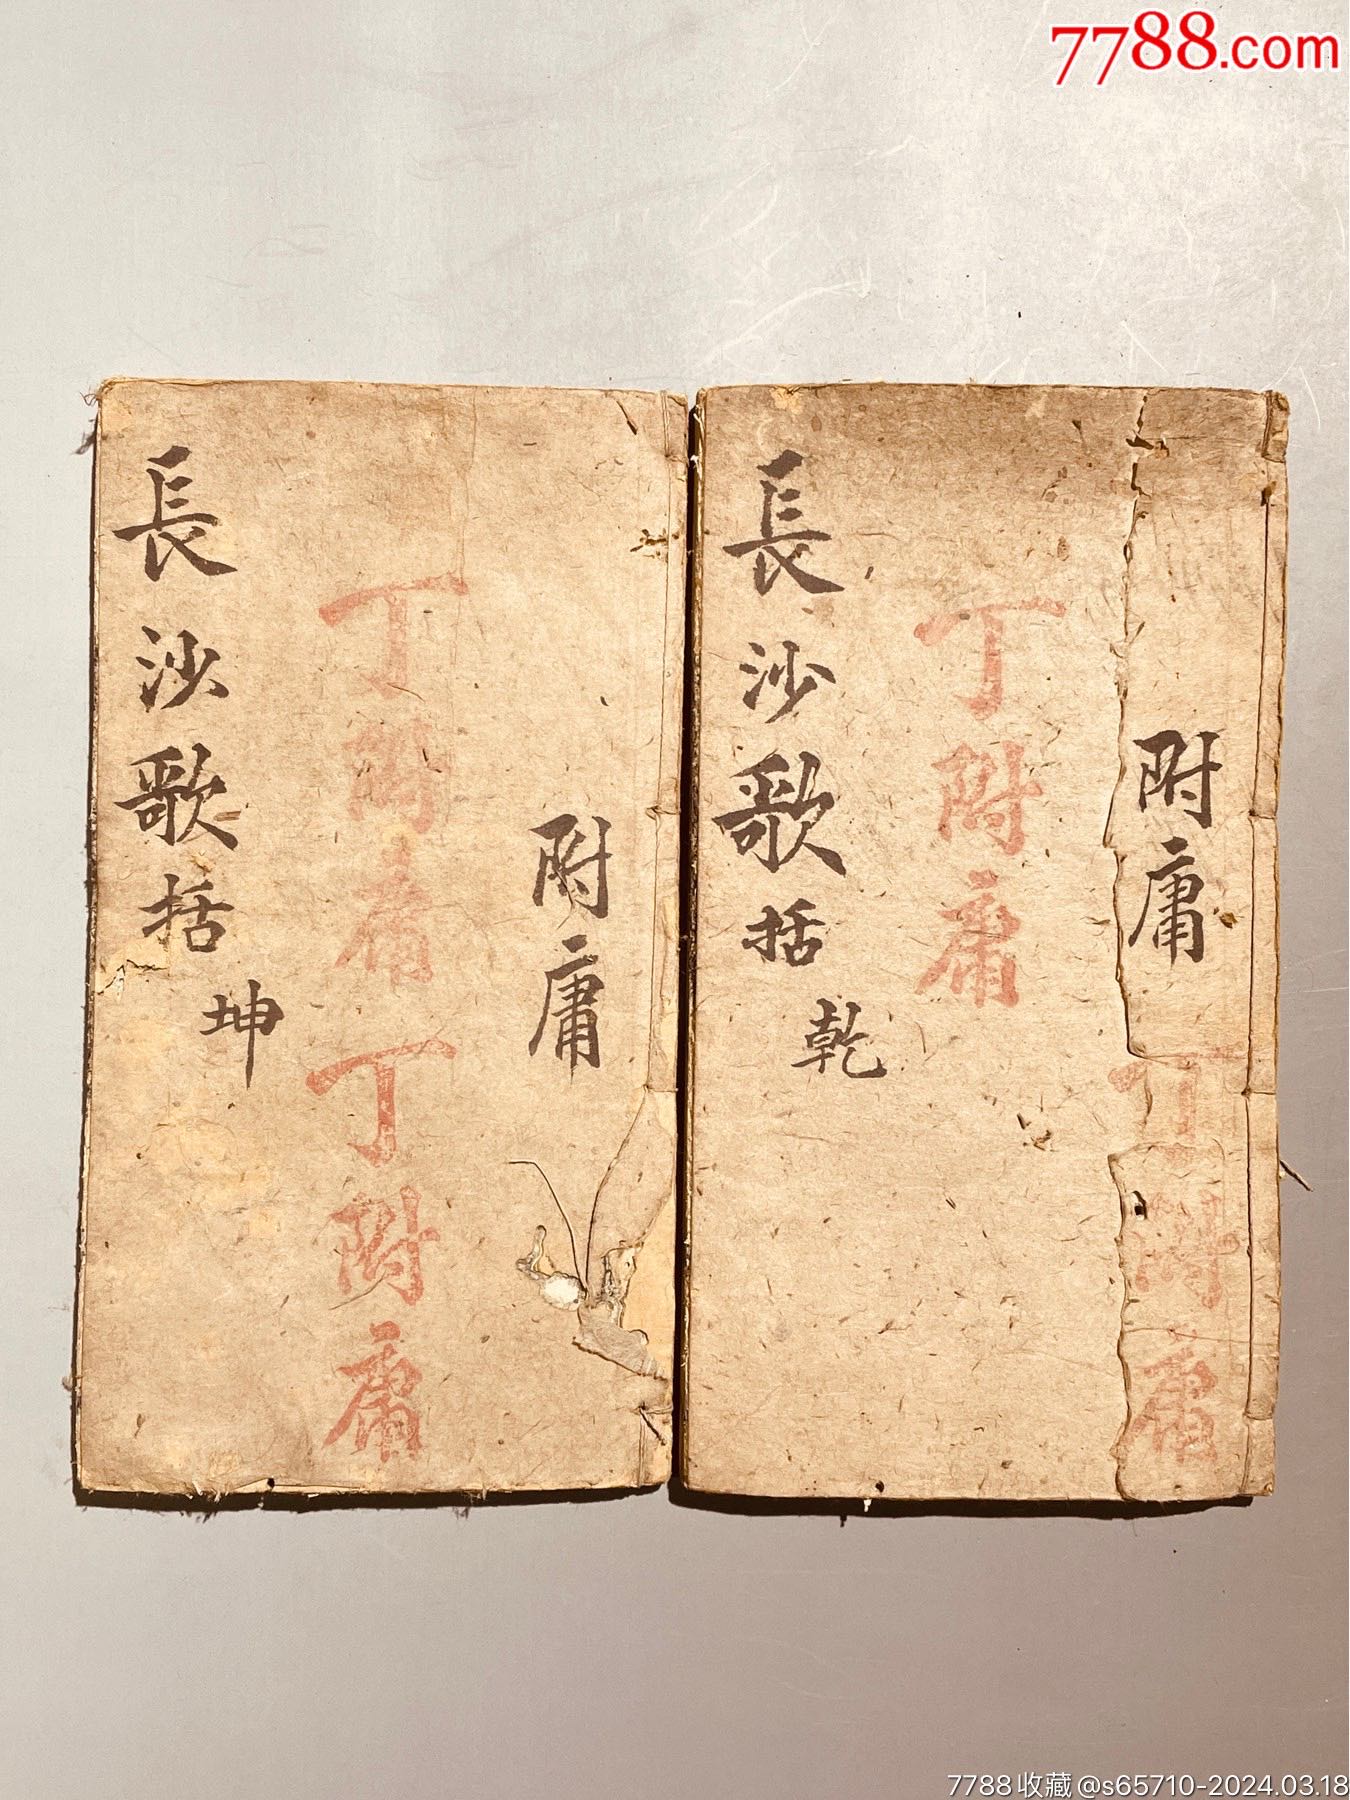 7788.com
附庸
丁附庸
丁附庸
長沙歌括
乾
附庸
丁附庸
丁附庸
長沙歌括
坤
7788收藏@s65710-2024.03.18